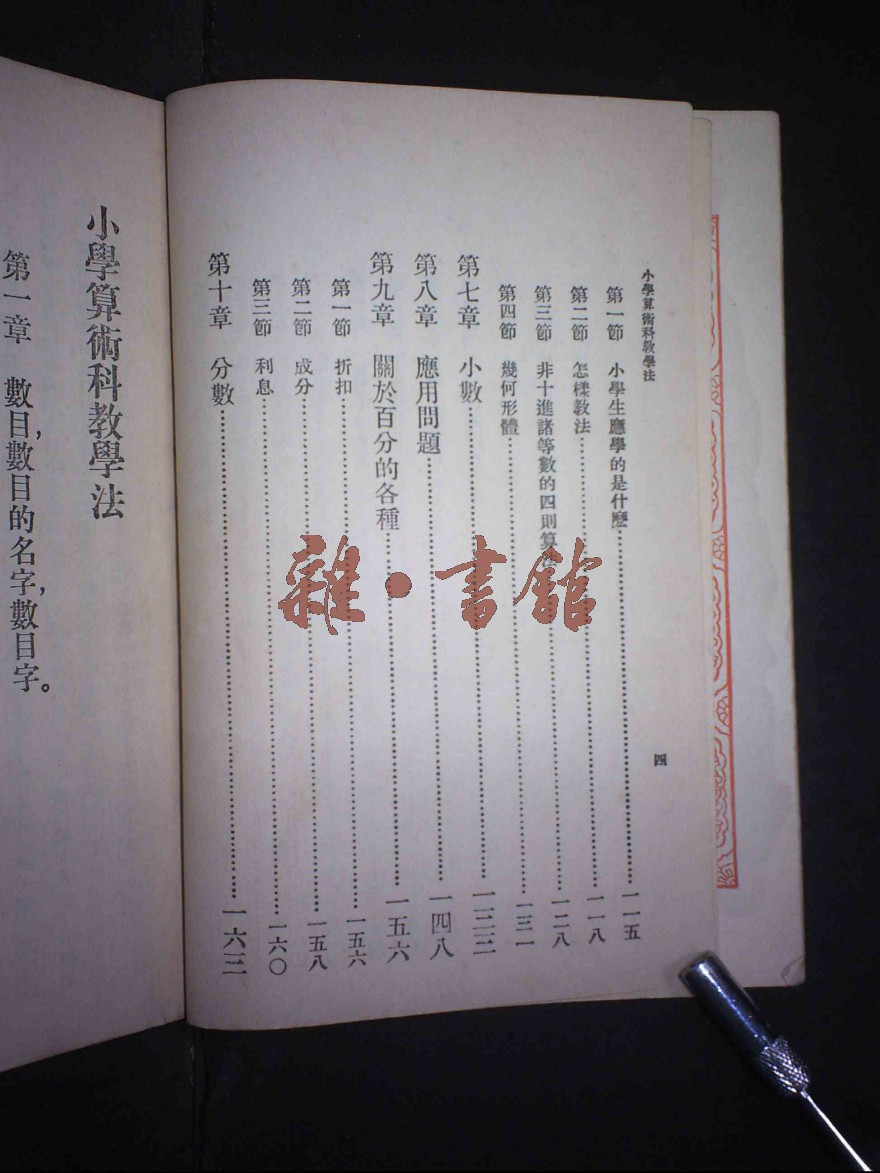 小學算術科教學法
四
第一節 小學生應學的是什麽……一一五
第二節 怎樣教法……一一八
第三節 非十進諸等數的四則算法……一二八
第四節 幾何形體……一三一
第七章 小數……一三三
第八章 應用問題……一四八
第九章 關於百分的各種……一五六
第一節 折扣……一五六
第二節 成分……一五八
第三節 利息……一六〇
第十章 分數……一六三
小學算術科教學法
第一章 數目,數目的名字,數目字。
雜·書館